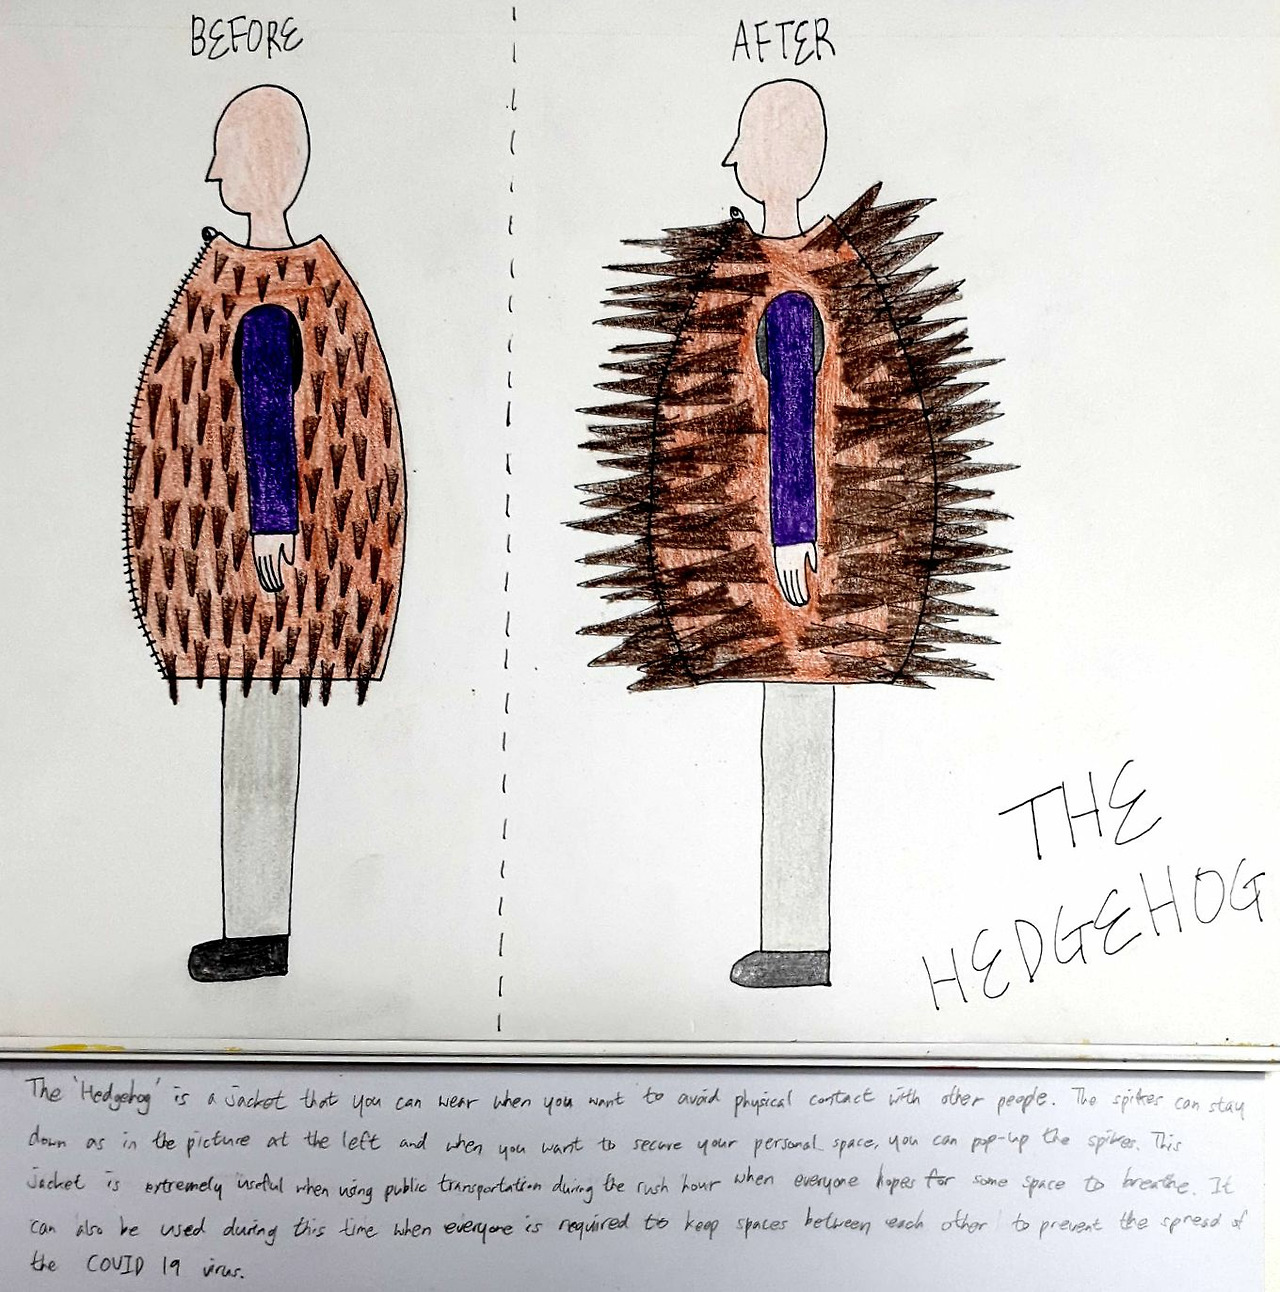 BEFORE
AFTER
THE
HEDGEHOG
The 'Hedgehog' is a jacket that you can wear when you want to avoid physical contact with other people. The spikes can stay
down as in the picture at the left and when you want to secure your personal space, you can pop-up the spikes. This
jacket is extremely useful when using public transportation during the rush hour when everyone hopes for some space to breathe. It
can also be used during this time when everyone is required to keep spaces between each other to prevent the spread of
the COVID 19 virus.